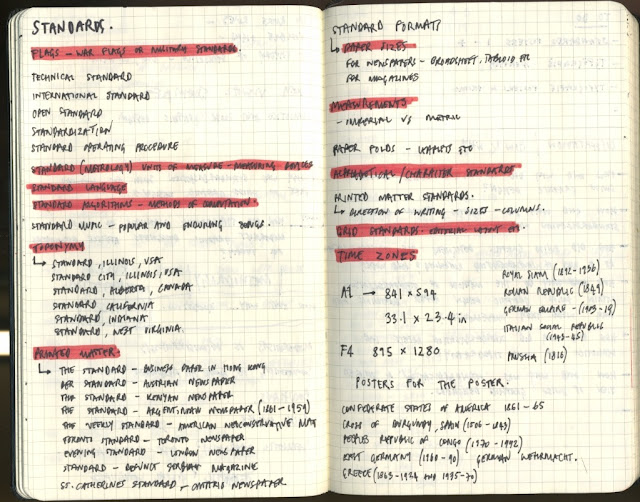 STANDARDS.
FLAGS - WAR FLAGS OR MILITARY STANDARDS.
TECHNICAL STANDARD
INTERNATIONAL STANDARD
OPEN STANDARD
STANDARDIZATION
STANDARD OPERATING PROCEDURE
STANDARD (METROLOGY) UNITS OF MEASURE - MEASURING DEVICES
STANDARD LANGUAGE
STANDARD ALGORITHMS - METHODS OF COMPUTATION.
STANDARD MUSIC - POPULAR AND ENDURING SONGS.
TOPONYMY
↳ STANDARD, ILLINOIS, USA
STANDARD CITY, ILLINOIS, USA
STANDARD, ALBERTA, CANADA
STANDARD, CALIFORNIA
STANDARD, INDIANA
STANDARD, WEST VIRGINIA.
PRINTED MATTER.
↳ THE STANDARD - BUSINESS PAPER IN HONG KONG
DER STANDARD - AUSTRIAN NEWSPAPER
THE STANDARD - KENYAN NEWSPAPER
THE STANDARD - ARGENTINIAN NEWSPAPER (1861-1959)
THE WEEKLY STANDARD - AMERICAN NEOCONSERVATIVE MAG
TORONTO STANDARD - TORONTO NEWSPAPER
EVENING STANDARD - LONDON NEWSPAPER
STANDARD - DEFUNCT SERBIAN MAGAZINE
ST. CATHERINES STANDARD - ONTARIO NEWSPAPER
STANDARD FORMATS
↳ PAPER SIZES
FOR NEWSPAPERS - BROADSHEET, TABLOID ETC
FOR MAGAZINES
MEASUREMENTS
- IMPERIAL VS METRIC
PAPER FOLDS - LEAFLETS ETC
ALPHABETICAL/CHARACTER STANDARDS
PRINTED MATTER STANDARDS.
↳ DIRECTION OF WRITING - SIZES - COLUMNS.
GRID STANDARDS. EDITORIAL LAYOUT ETC.
TIME ZONES
A1 → 841 × 594
33.1 × 23.4 in
F4 895 × 1280
ROYAL SIAM (1892-1936)
ROMAN REPUBLIC (1849)
GERMAN EMPIRE - (1903-19)
ITALIAN SOCIAL REPUBLIC
(1943-45)
PRUSSIA (1816)
POSTERS FOR THE POSTER.
CONFEDERATE STATES OF AMERICA 1861-65
CROSS OF BURGUNDY, SPAIN (1506-1843)
PEOPLES REPUBLIC OF CONGO (1970-1992)
EAST GERMANY (1960-90) GERMAN WEHRMACHT.
GREECE (1863-1924 AND 1935-70)